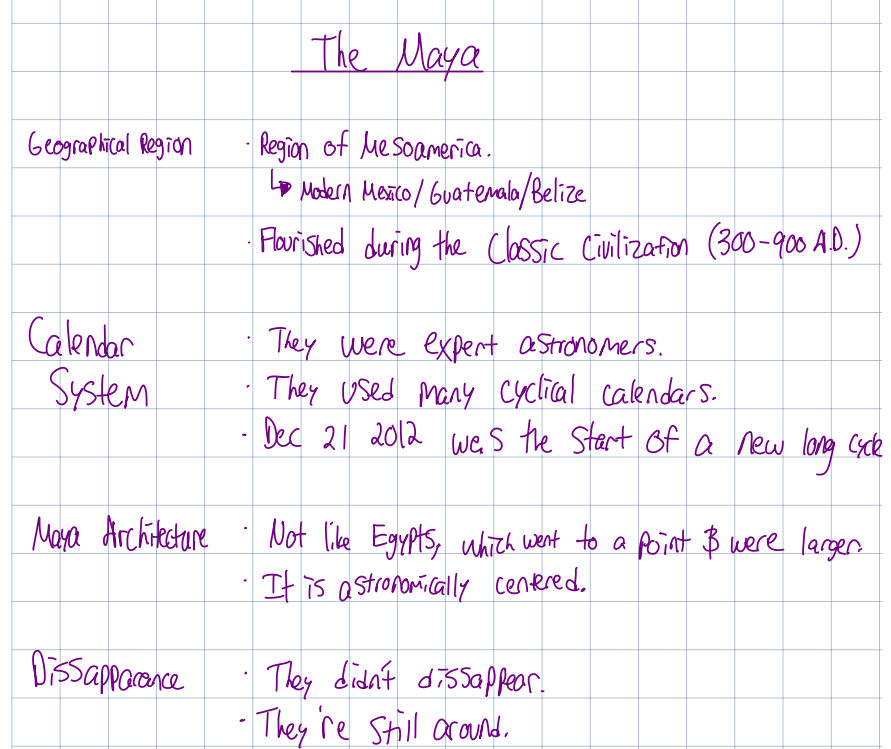 The Maya
Geographical Region · Region of Mesoamerica.
↳ Modern Mexico/Guatemala/Belize
· Flourished during the Classic Civilization (300-900 A.D.)
Calendar · They were expert astronomers.
System · They used many cyclical calendars.
· Dec 21 2012 was the start of a new long cycle
Maya Architecture · Not like Egypts, which went to a point & were larger.
· It is astronomically centered.
Dissapparance · They didn't dissappear.
· They're still around.